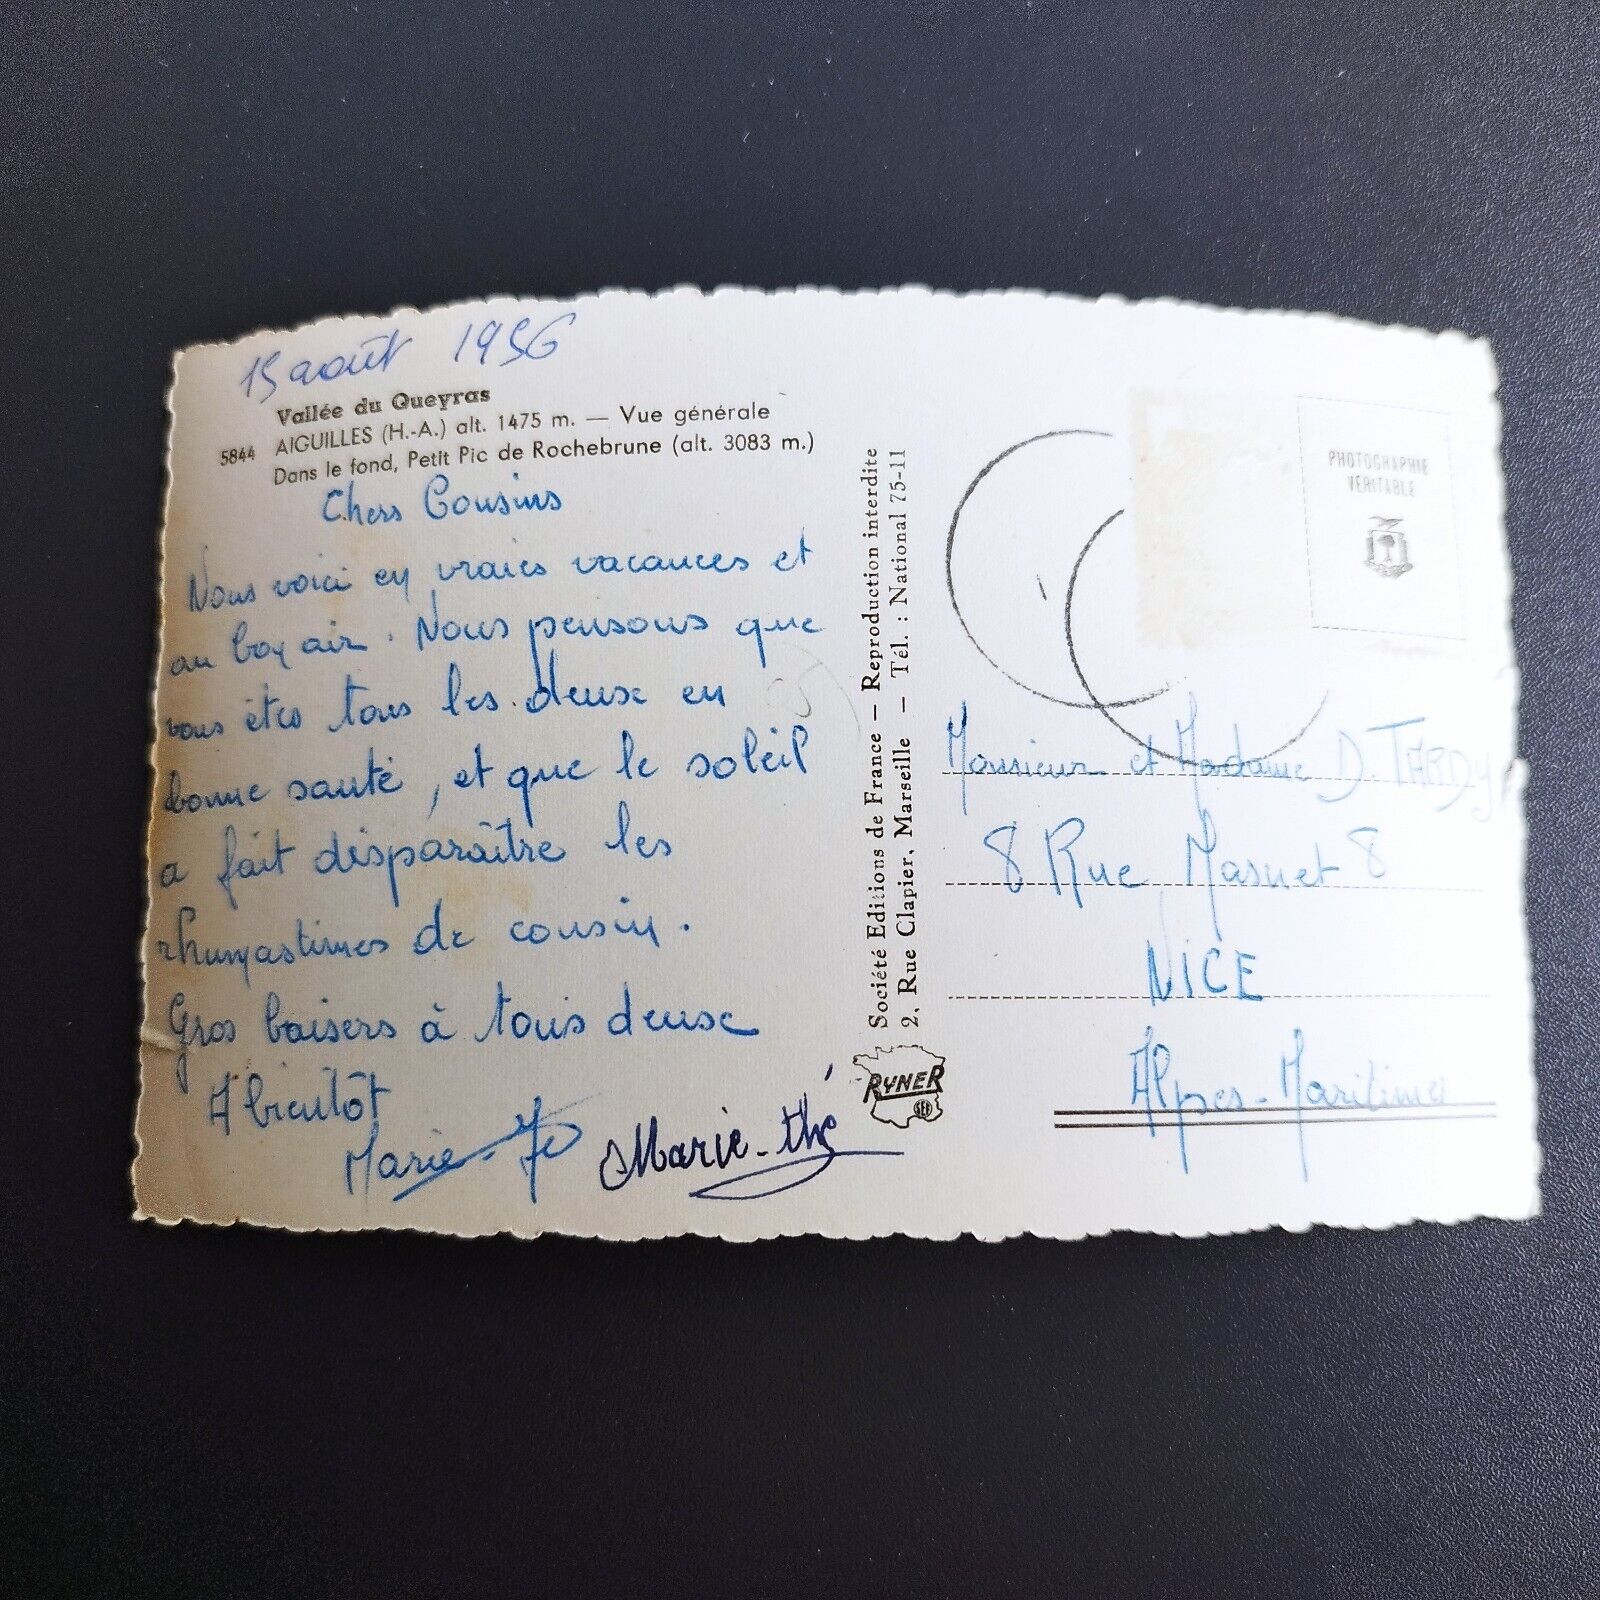 15 août 1956
Vallée du Queyras
5844 AIGUILLES (H.-A.) alt. 1475 m. — Vue générale
Dans le fond, Petit Pic de Rochebrune (alt. 3083 m.)
Chers Cousins
Nous voici en vraies vacances et
au bon air. Nous pensons que
vous êtes tous les deux en
bonne santé, et que le soleil
a fait disparaître les
rhumastimes de cousin.
Gros baisers à tous deux
A bientôt
Marie-Jo
Marie-thé
Société Editions de France — Reproduction interdite
2, Rue Clapier, Marseille — Tél. : National 75-11
RYNER
SEF
PHOTOGRAPHIE
VERITABLE
Monsieur et Madame D. TARDY
8 Rue Masnet 8
NICE
Alpes-Maritimes